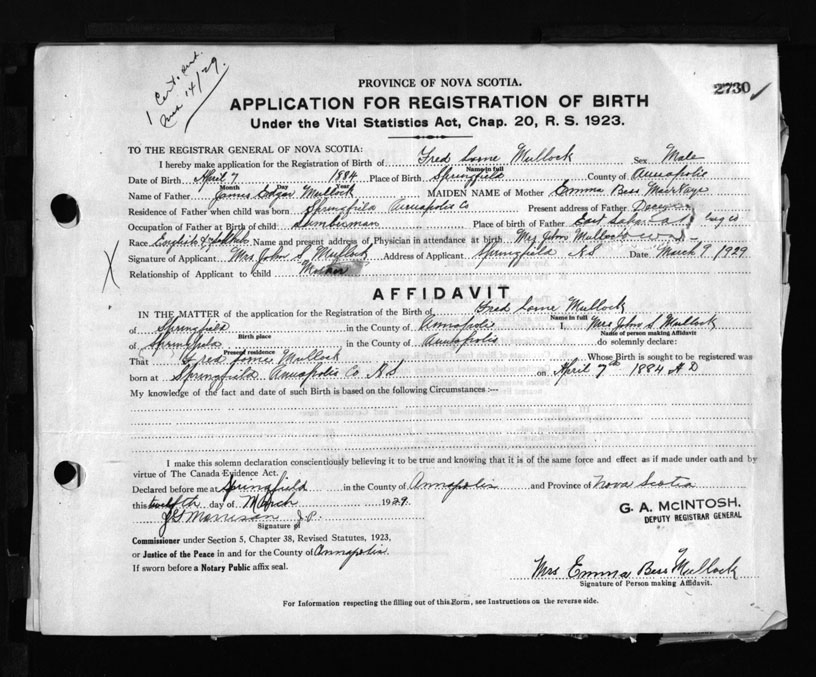 1 Cert. sent.
14/29.
2730
PROVINCE OF NOVA SCOTIA.
APPLICATION FOR REGISTRATION OF BIRTH
Under the Vital Statistics Act, Chap. 20, R. S. 1923.
TO THE REGISTRAR GENERAL OF NOVA SCOTIA:
I hereby make application for the Registration of Birth of Fred Lorne Mullock Sex Male
Name in full
Date of Birth April 7 1884 Place of Birth Springfield County of Annapolis
Month Day Year
Name of Father James Edgar Mullock MAIDEN NAME of Mother Emma Bess
Residence of Father when child was born Springfield Annapolis Co Present address of Father
Occupation of Father at Birth of child Lumberman Place of birth of Father East
Race English & Name and present address of Physician in attendance at birth Mrs John Mullock
Signature of Applicant Mrs John S Mullock Address of Applicant Springfield NS Date March 9 1929
Relationship of Applicant to child Mother
AFFIDAVIT
IN THE MATTER of the application for the Registration of the Birth of Fred Lorne Mullock
Name in full
of Springfield in the County of Annapolis I, Mrs John S Mullock
Birth place Name of person making Affidavit
of Springfield in the County of Annapolis do solemnly declare:
Present residence
That Fred Lorne Mullock Whose Birth is sought to be registered was
born at Springfield Annapolis Co N S on April 7th 1884 A D
My knowledge of the fact and date of such Birth is based on the following Circumstances :—
I make this solemn declaration conscientiously believing it to be true and knowing that it is of the same force and effect as if made under oath and by
virtue of The Canada Evidence Act.
Declared before me at Springfield in the County of Annapolis and Province of Nova Scotia
this twelfth day of March 1929
G. A. McINTOSH,
DEPUTY REGISTRAR GENERAL
Morrison J.P.
Signature of
Commissioner under Section 5, Chapter 38, Revised Statutes, 1923,
or Justice of the Peace in and for the County of Annapolis
If sworn before a Notary Public affix seal.
Mrs Emma Bess Mullock
Signature of Person making Affidavit.
For Information respecting the filling out of this Form, see Instructions on the reverse side.